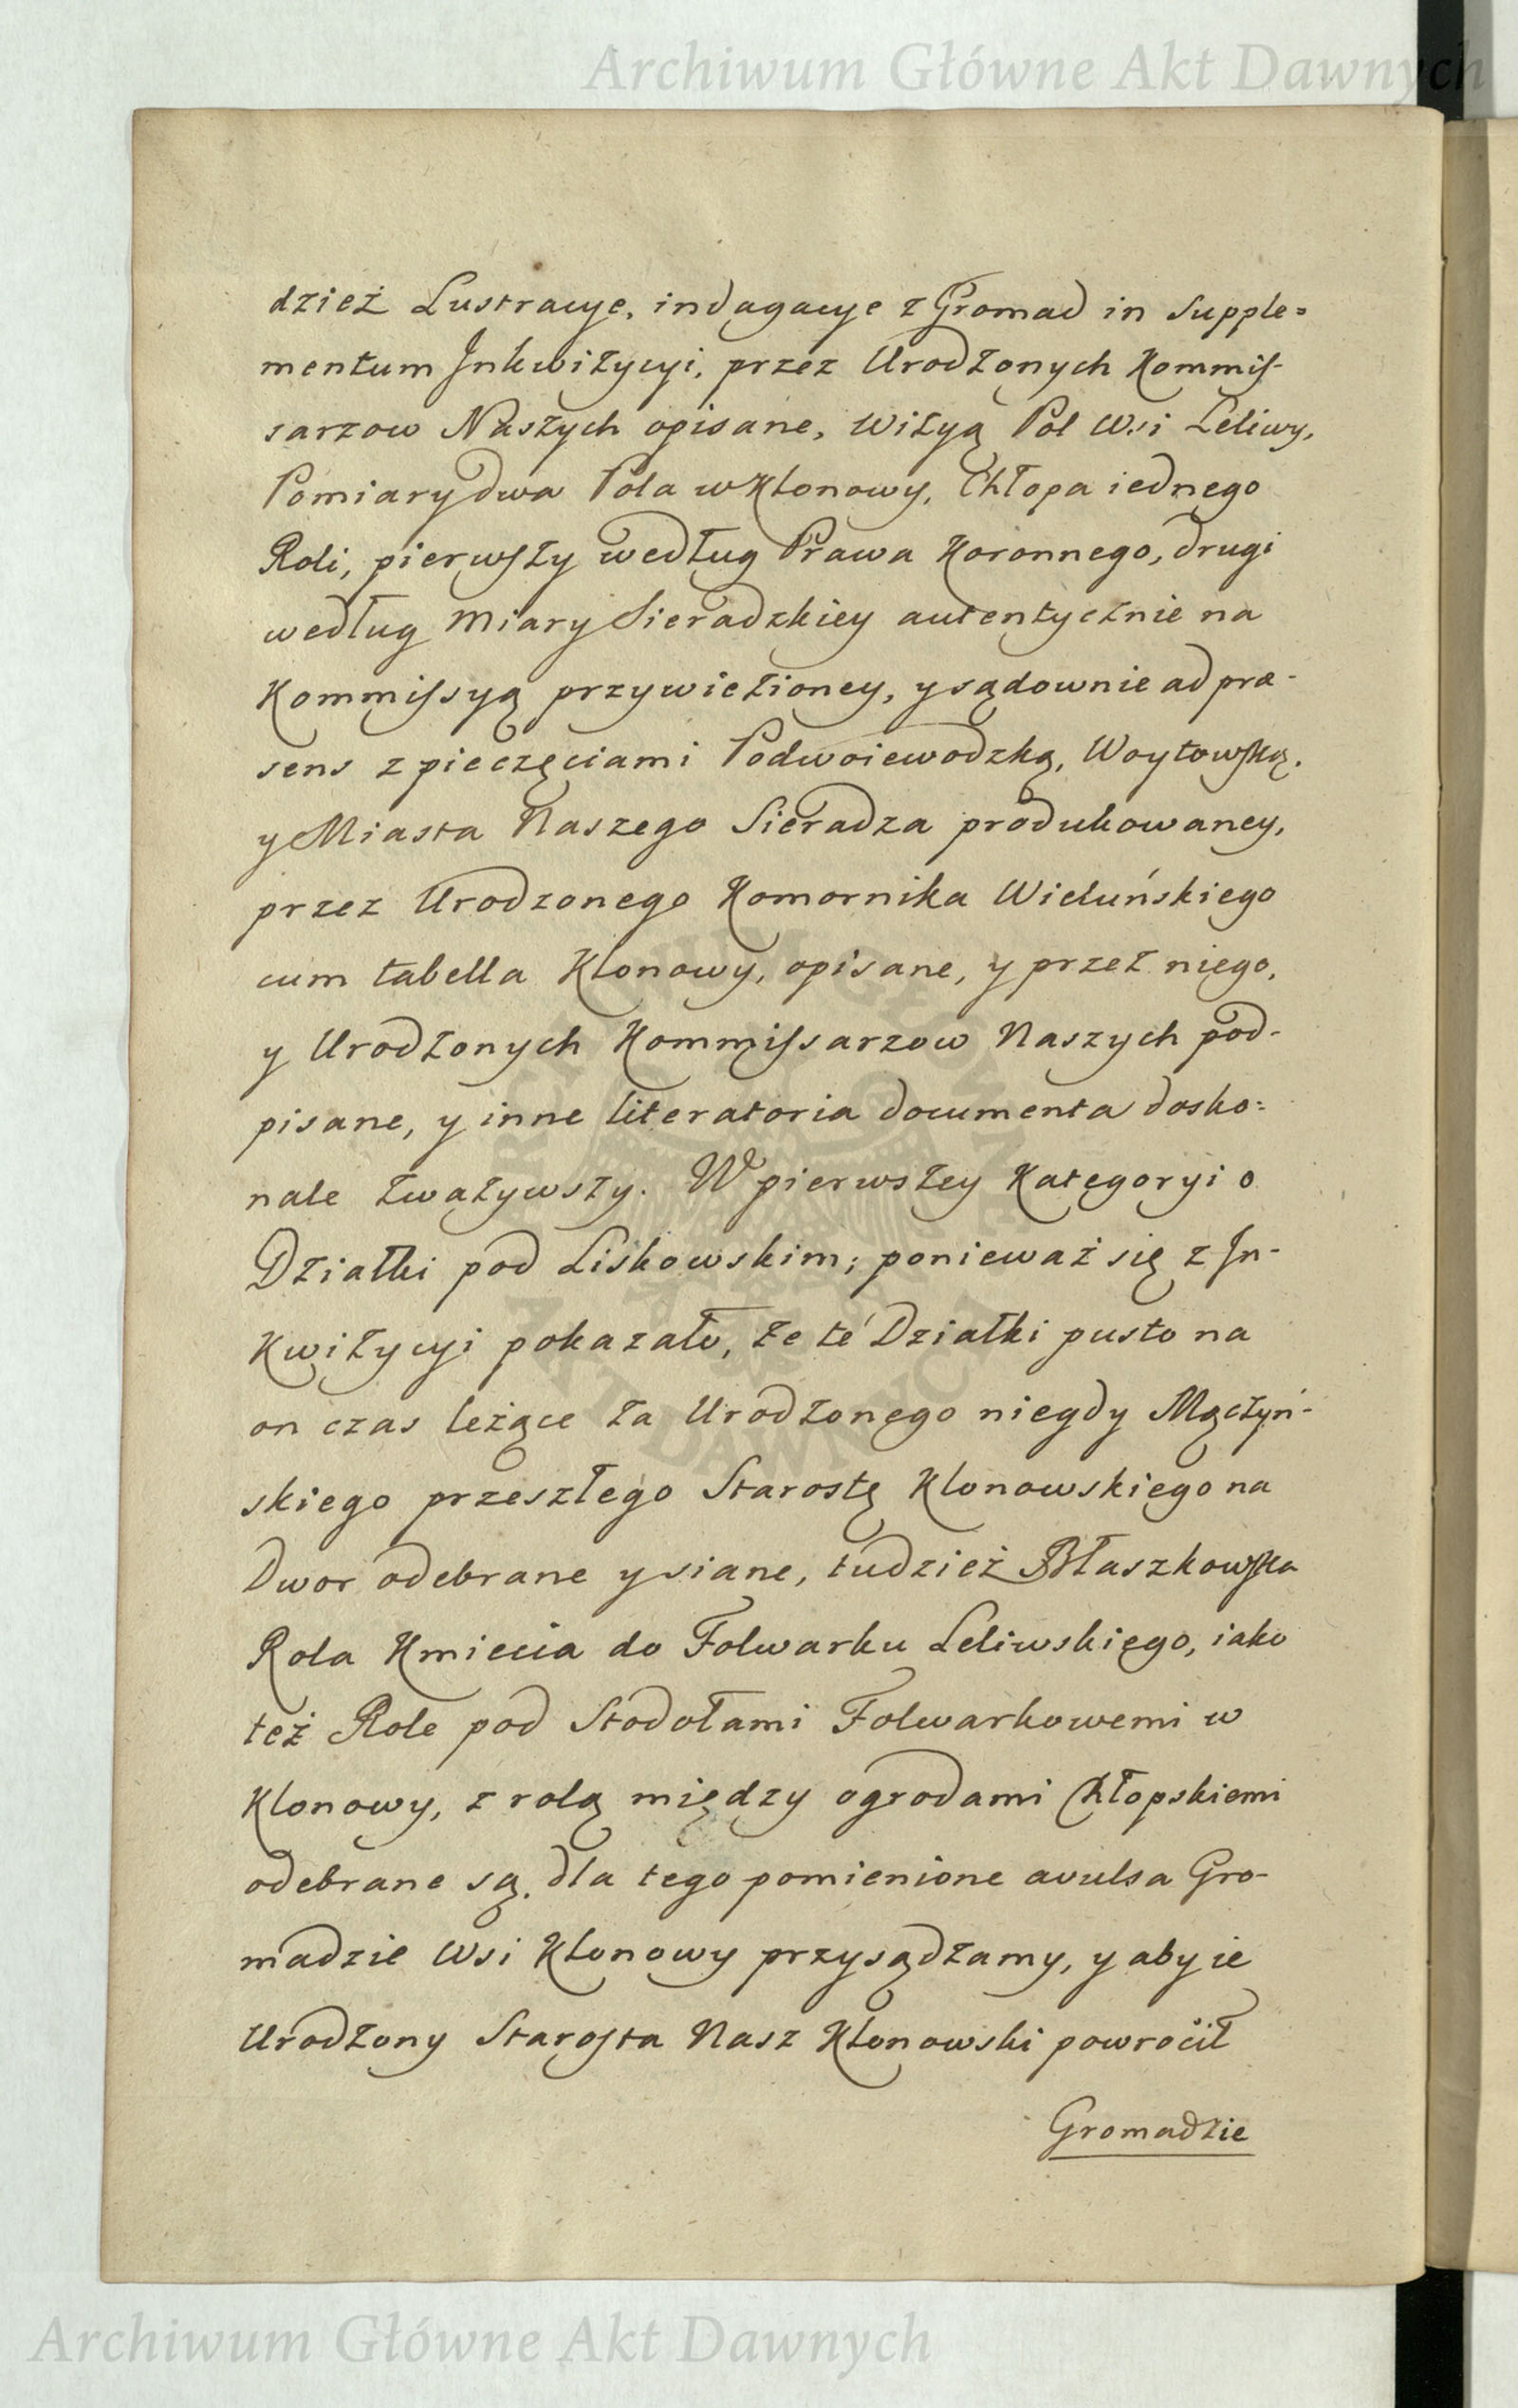 Archiwum Główne Akt Dawnych
dzież Lustracye, indagacye z Gromad in Supple=
mentum Jnkwizycyi, przez Urodzonych Kommis-
sarzow Naszych opisane, Wizyą Pol Wsi Leliwy,
Pomiary dwa Pola w Klonowy, Chłopa iednego
Roli, pierwszy według Prawa Koronnego, drugi
według Miary Sieradzkiey autentycznie na
Kommissyą przywiezioney, y sądownie ad præ-
sens z pieczęciami Podwoiewodzką, Woytowską,
y Miasta Naszego Sieradza produkowaney,
przez Urodzonego Komornika Wieluńskiego
cum tabella Klonowy, opisane, y przez niego,
y Urodzonych Kommissarzow Naszych pod-
pisane, y inne literatoria documenta dosko=
nale zważywszy. W pierwszey Kategoryi o
Działki pod Liskowskim; ponieważ się z Jn-
kwizycyi pokazało, że te Działki pusto na
on czas leżące za Urodzonego niegdy Mączyń-
skiego przeszłego Starostę Klonowskiego na
Dwor odebrane y siane, tudzież Błaszkowska
Rola Kmiecia do Folwarku Leliwskiego, iako
też Role pod Stodołami Folwarkowemi w
Klonowy, z rolą między ogrodami Chłopskiemi
odebrane są, dla tego pomienione avulsa Gro-
madzie Wsi Klonowy przysądzamy, y aby ie
Urodzony Starosta Nasz Klonowski powrócił
Gromadzie
Archiwum Główne Akt Dawnych